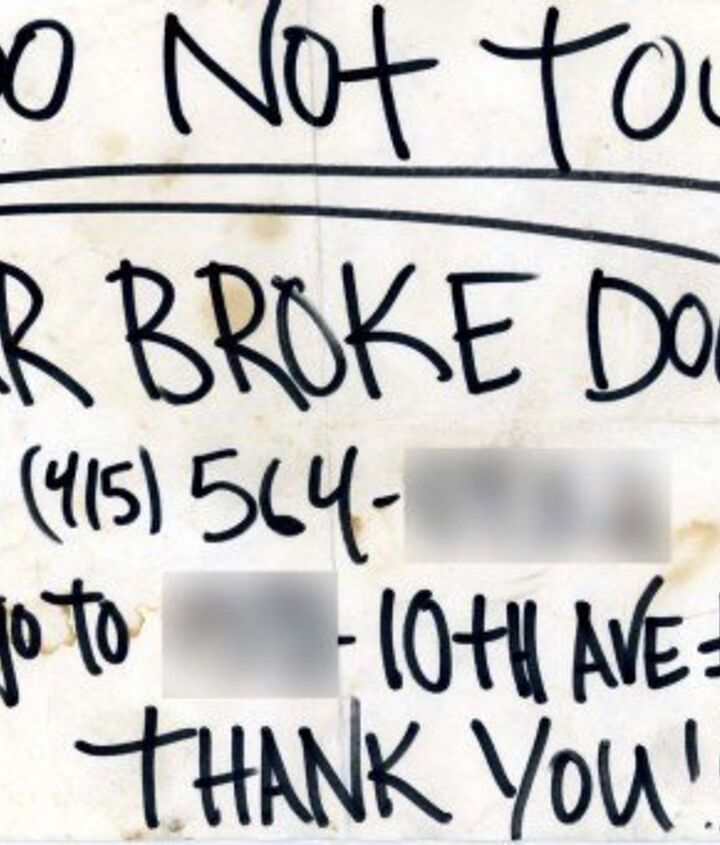 DO NOT TOU
R BROKE DO
(415) 564-
go to - 10TH AVE #
THANK YOU!!